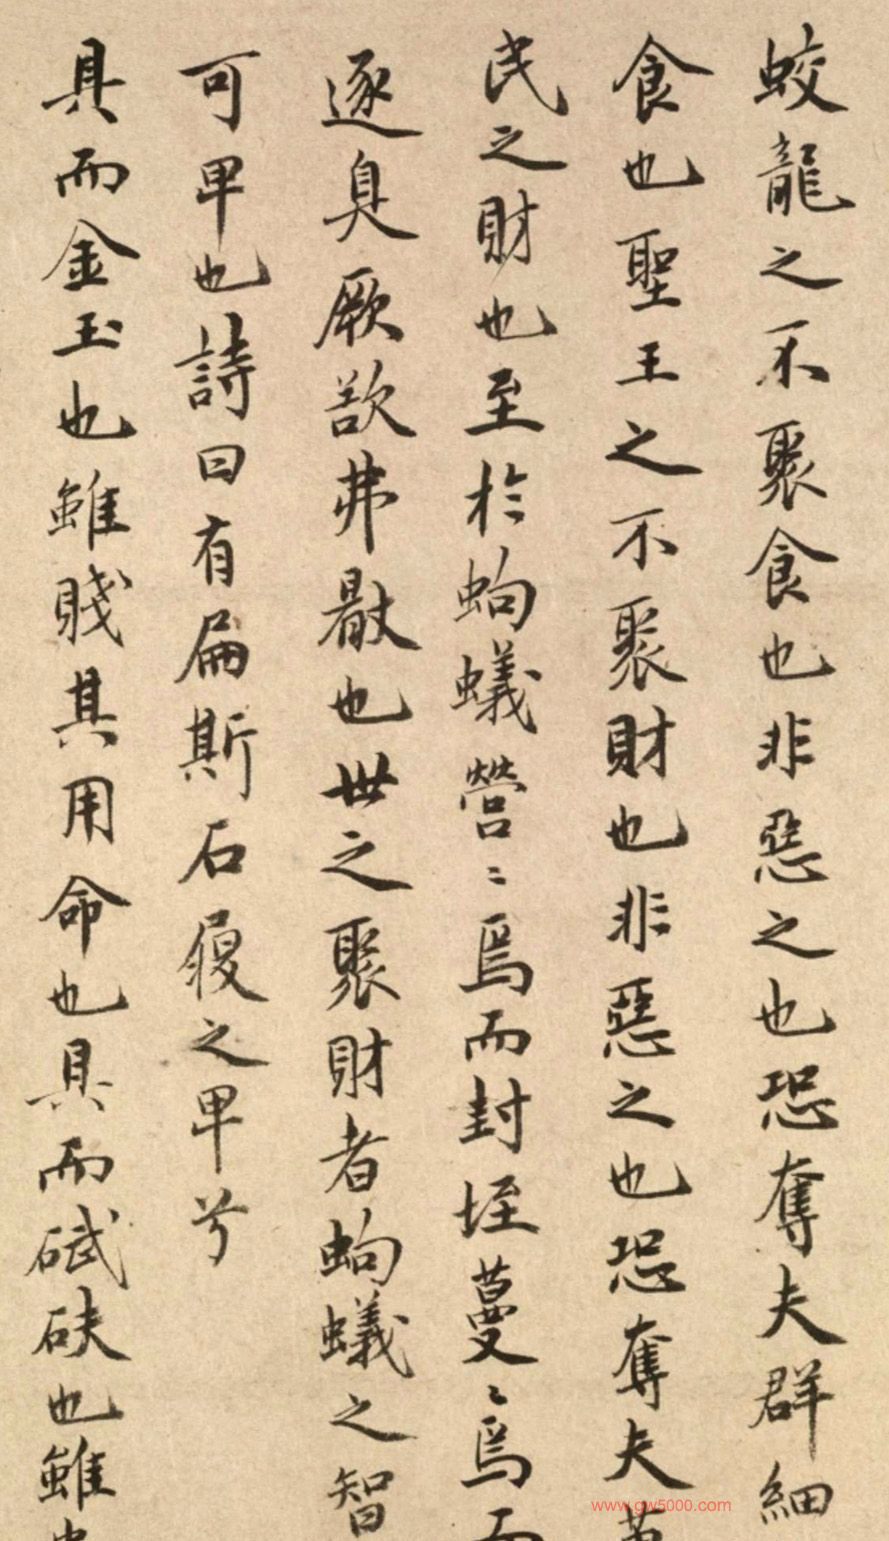 蛟龍之不聚食也非惡之也恐奪夫群細
食也聖王之不聚財也非惡之也恐奪夫
民之財也至於蚼蟻營〻焉而封垤蔓〻焉而
逐臭厥欲弗也世之聚財者蚼蟻之智
可卑也詩曰有扁斯石履之卑兮
具而金玉也雖賤其用命也具而碔砆也雖
www.gw5000.com